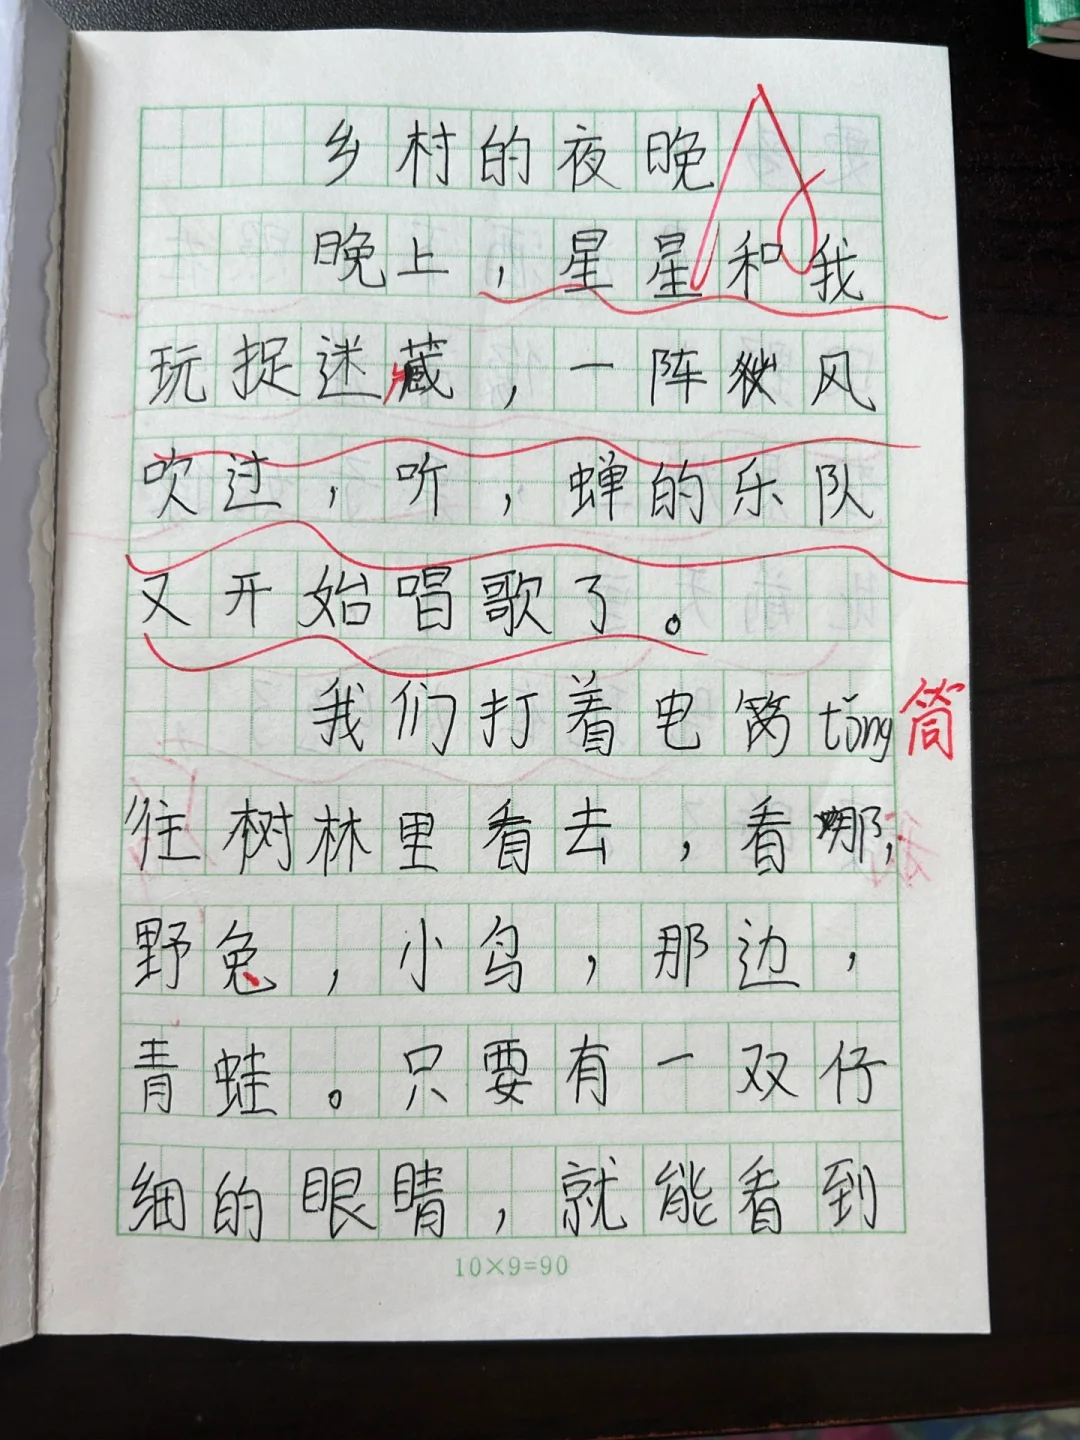 乡村的夜晚
晚上，星星和我
玩捉迷藏，一阵风
吹过，听，蝉的乐队
又开始唱歌了。
我们打着电tǒng筒
往树林里看去，看那，
野兔，小鸟，那边，
青蛙。只要有一双仔
细的眼睛，就能看到
10×9=90